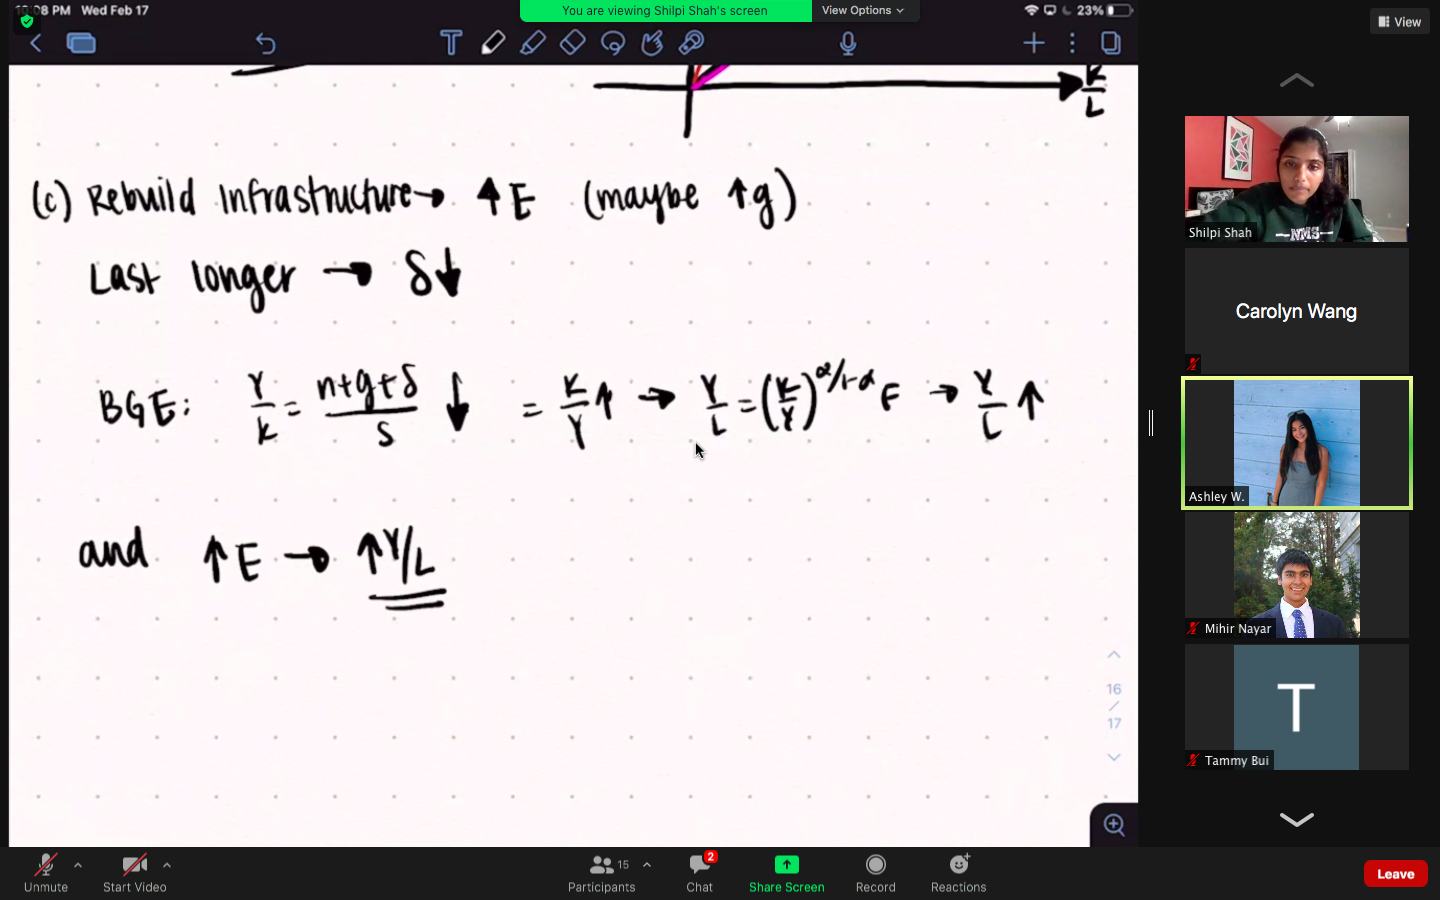 08 PM Wed Feb 17
You are viewing Shilpi Shah's screen
View Options
23%
View
T
K/L
(c) Rebuild Infrastructure → ↑E (maybe ↑g)
Last longer → δ↓
BGE: Y/K = n+g+δ/s ↓ = K/Y ↑ → Y/L = (K/Y)^α/1-α E → Y/L ↑
and ↑E → ↑Y/L
16
/
17
Shilpi Shah
Carolyn Wang
Ashley W.
Mihir Nayar
T
Tammy Bui
Unmute
Start Video
Participants 15
Chat 2
Share Screen
Record
Reactions
Leave